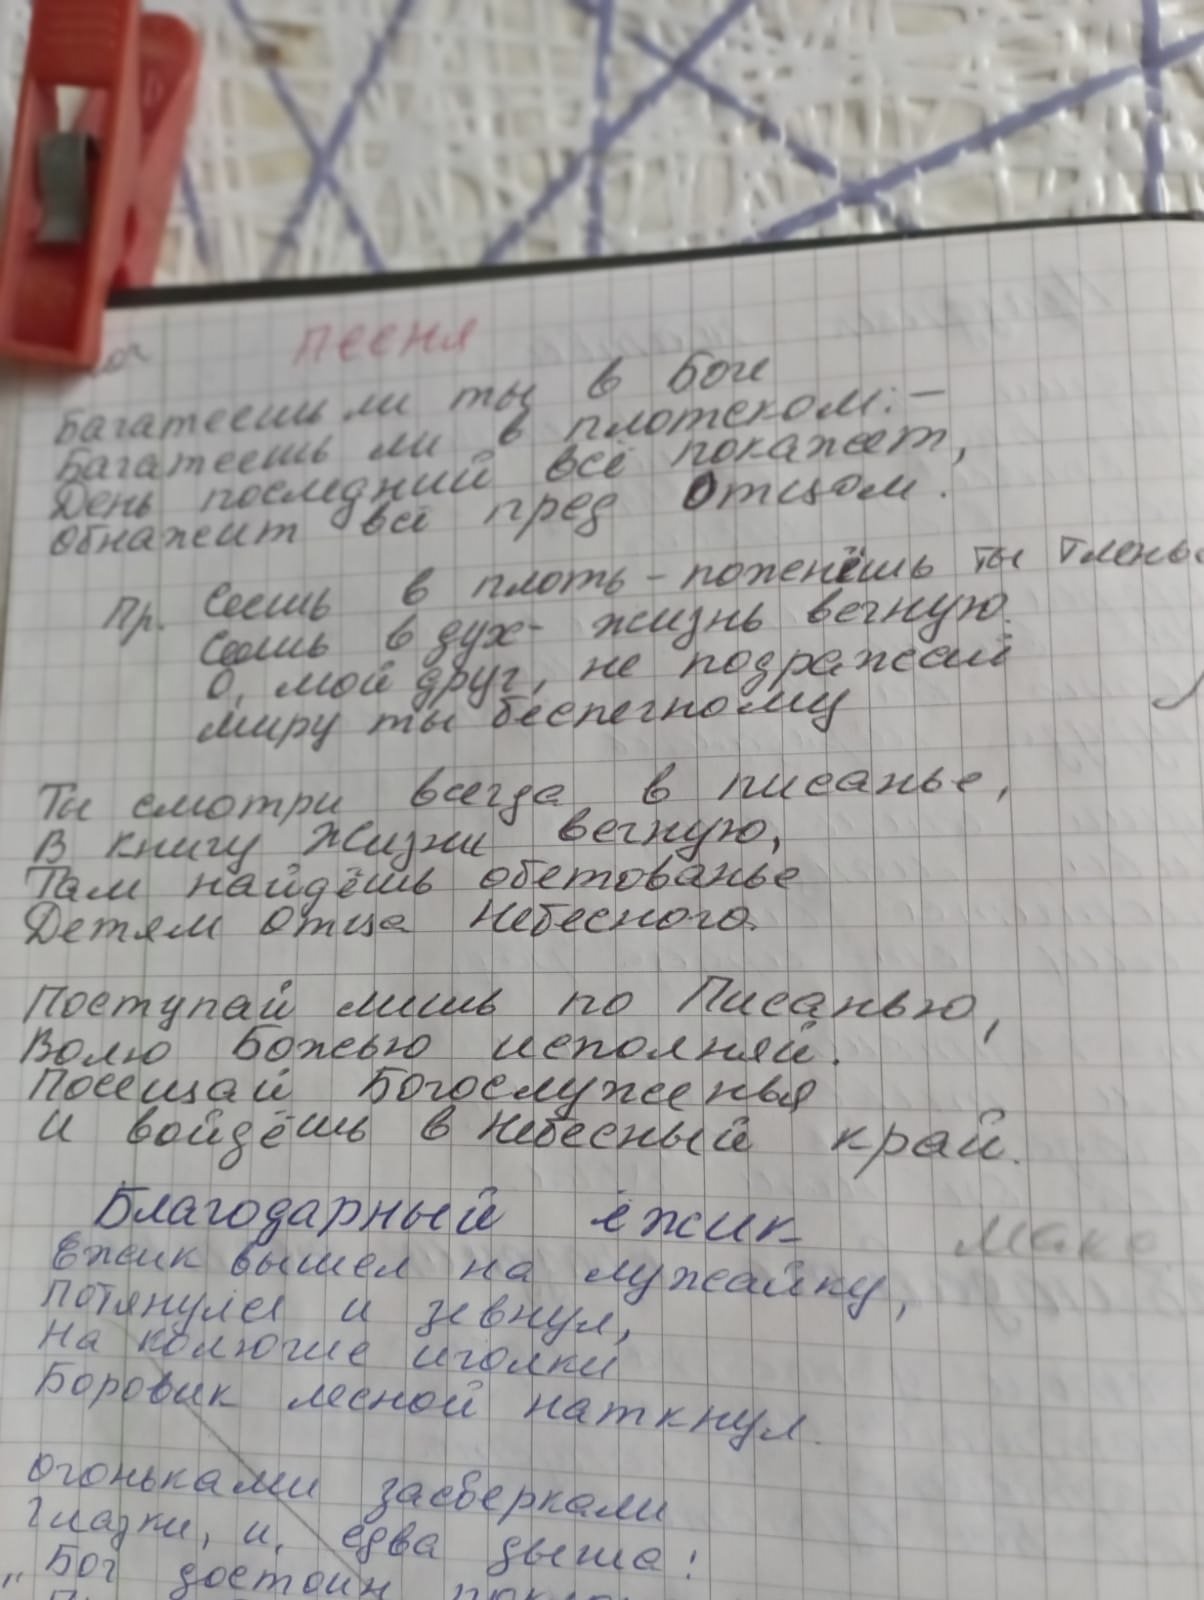 песня
Багатеешь ли ты в Боге
Багатеешь ли в плотском: –
День последний всё покажет,
Обнажит всё пред Отцом.
Пр. Сеешь в плоть – пожнёшь ты тленье
Сеешь в дух – жизнь вечную.
О, мой друг, не подражай
миру ты беспечному
Ты смотри всегда в писанье,
В книгу Жизни вечную,
Там найдёшь обетованье
Детям Отца Небесного.
Поступай лишь по Писанью,
Волю Божью исполняй.
Посещай Богослуженья
И войдёшь в Небесный край.
Благодарный ёжик
Ежик вышел на лужайку,
Потянулся и зевнул,
На колючие иголки
Боровик лесной наткнул.
Огоньками засверкали
Глазки, и, едва дыша:
„Бог достоин